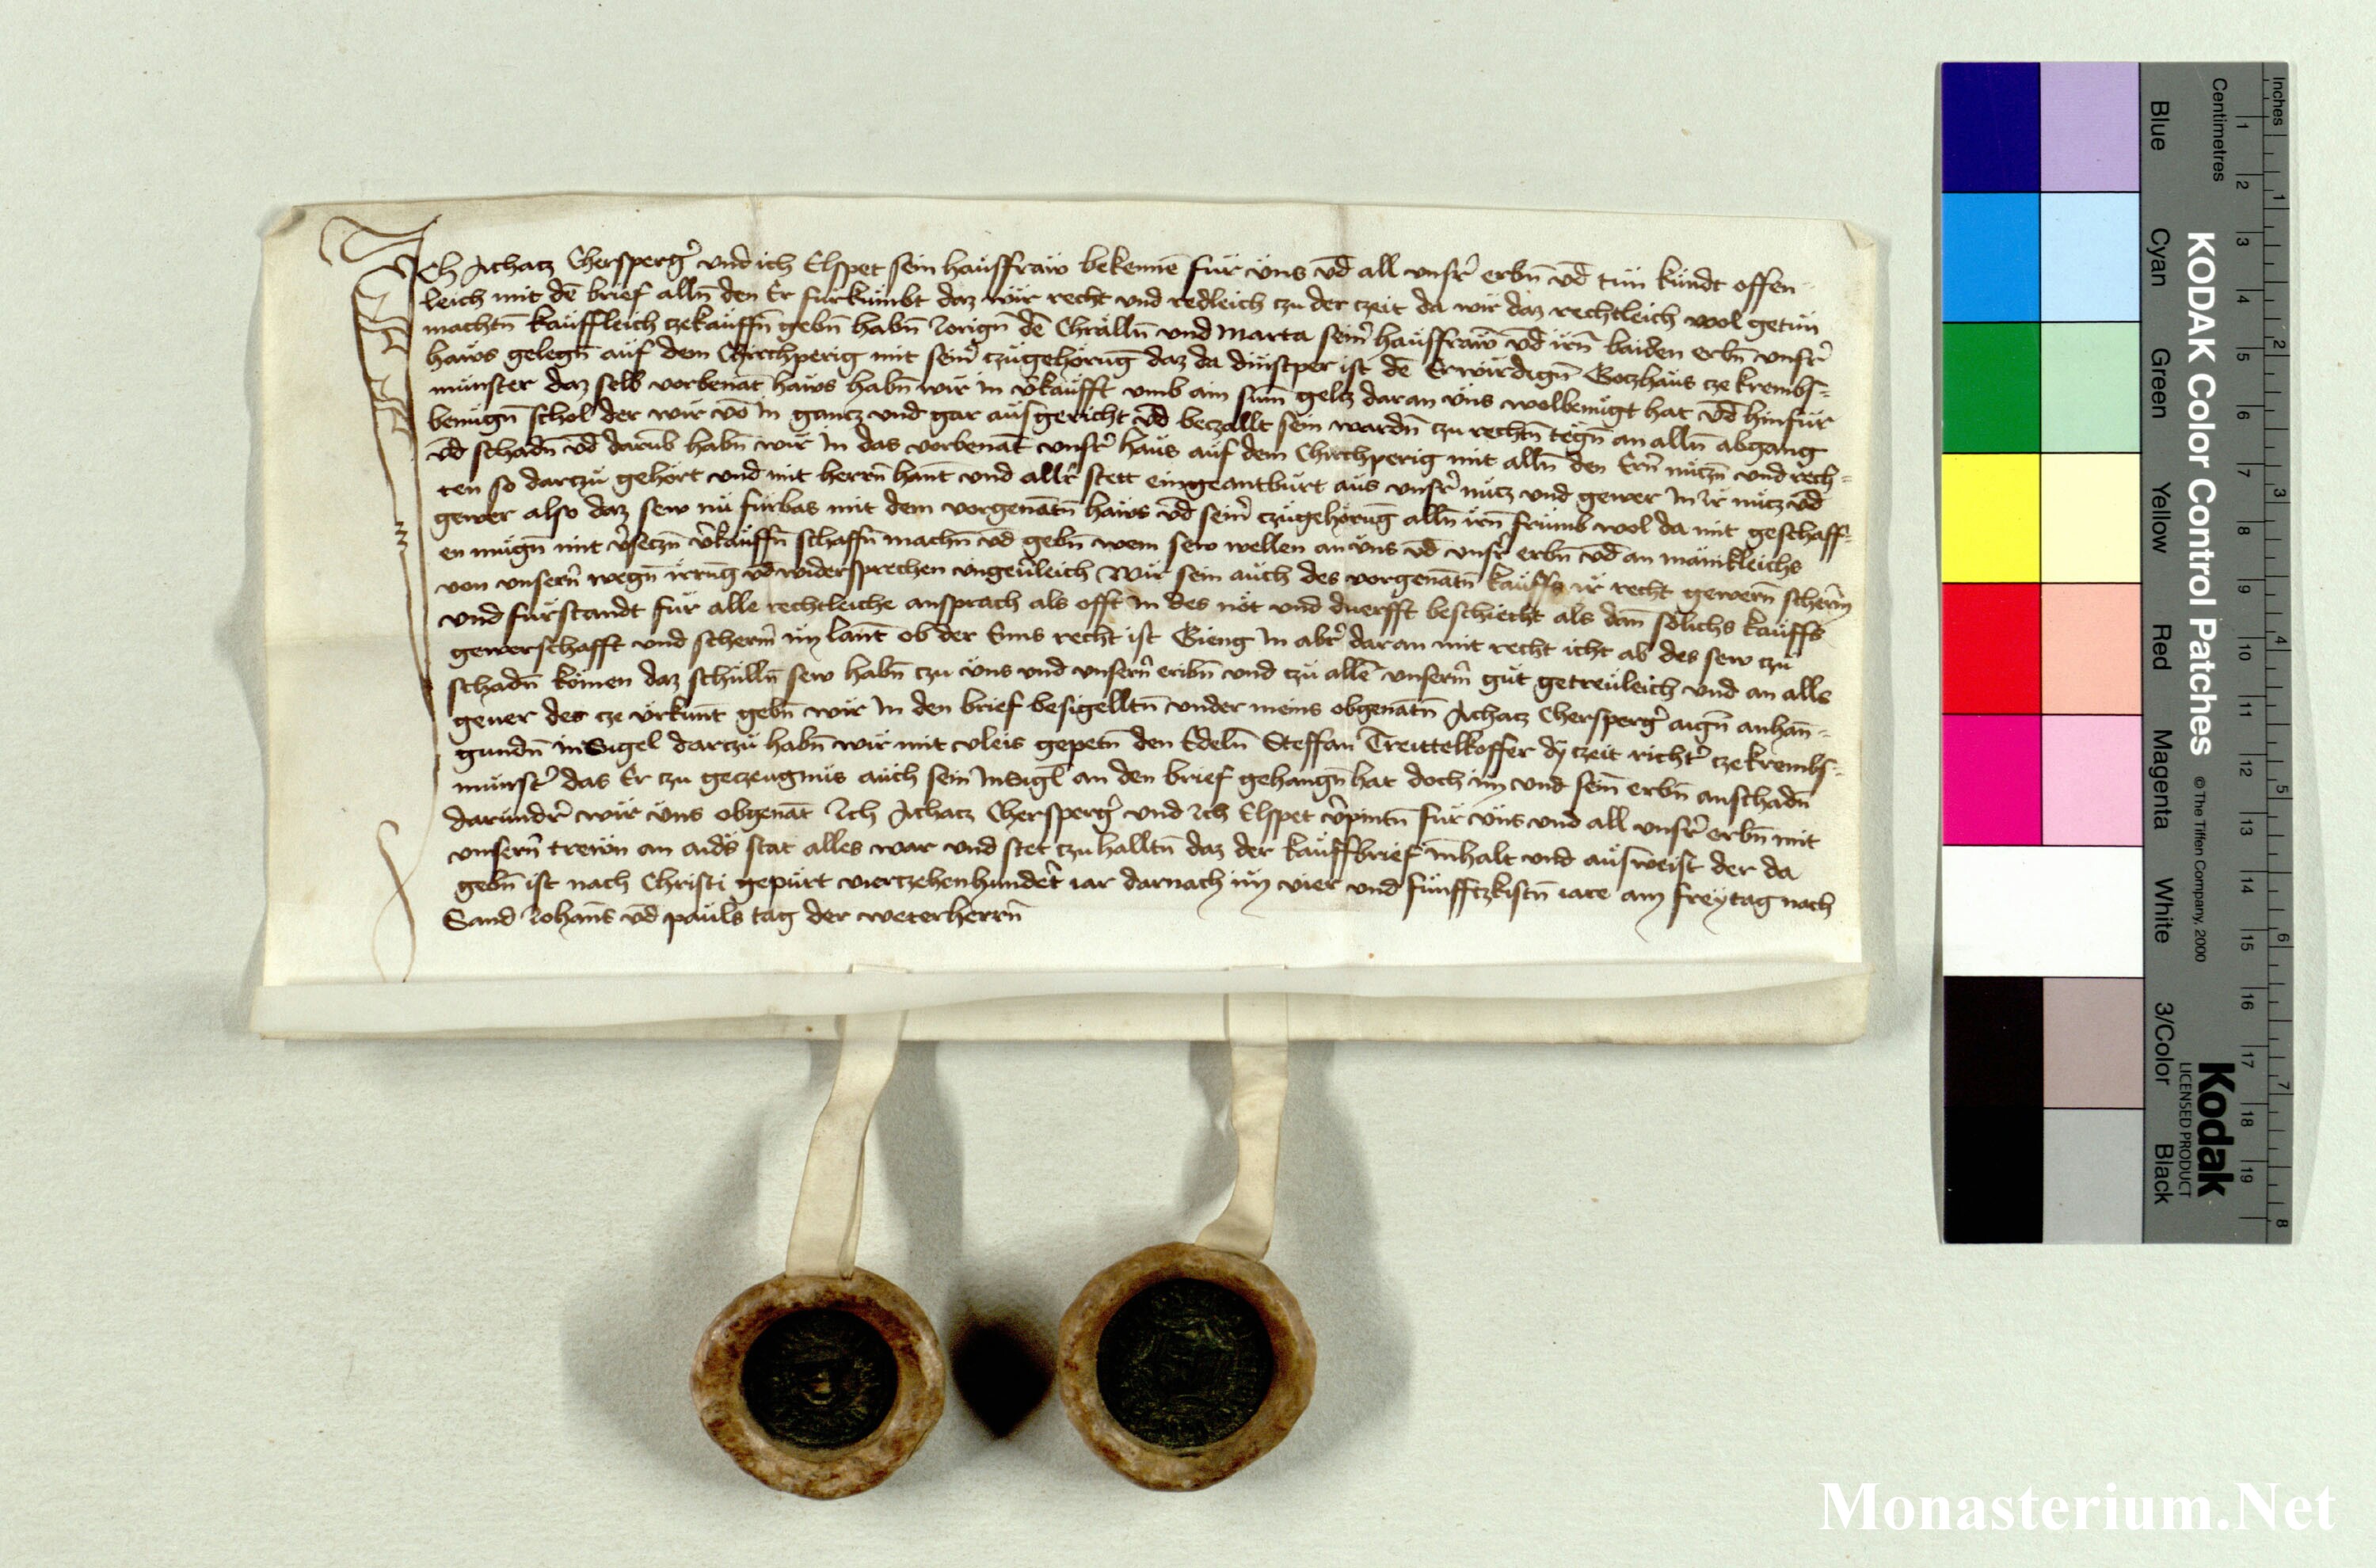 Ich Achacz Chersperger̉ vnd ich Elspet sein haüsfraẅ bekenne᷑ für üns vn̄d all vnsr̉ erbn̄ vn̄d tün kündt offen-
leich mit de᷑ brief alln̄ den Er fürkümbt daz wir recht vnd redleich czu der czeit da wir daz rechtleich wol getün
machtn̄ kaüffleich czekaüffn̄ gebn̄ habn̄ Jörign̄ de᷑ Chrälln̄ vnd Marta seinr̉ haüsfraẅ vn̄d irn̄ baiden erbn̄ vnsr̉
haẅs gelegn̄ aüf dem Chirchperig mit seinr̉ czügehörüg̅ daz da dinstper ist de᷑ Erwirdign̄ Gotzhaüs cze krembs-
münster daz selb vorbenāt haẅs habn̄ wir in v̉kaüfft vmb ain sum̄ geltz daran üns wolbenügt hat vn̄d hinfür
benügn̄ schol der wir vo᷑ in gancz vnd gar aüsgericht vn̄d beczallt sein wardn̄ czu rechtn̄ tëgn̄ an alln̄ abgang
vn̄d schadn̄ vn̄d darüb̄ habn̄ wir in das vorbenāt vnsr̉ haüs aüf dem Chirchperig mit alln̄ den Ern̄ nützn̄ vnd rech-
ten so darczü gehört vnd mit herrn̄ hant vnd allr̉ stett eingeantbürt aüs vnsr̉ nütz vnd gewer in ir nütz vn̄d
gewer also daz sew nü fürbas mit dem vorgenātn̄ haẅs vn̄d seinr̉ czügehörüg̅ alln̄ irn̄ frümb wol da mit geschaff-
en mügn̄ mit v̉seczn̄ v̉kaüffn̄ schaffn̄ machn̄ vn̄d gebn̄ wem sew wellen an üns vn̄d vnsr̉ erbn̄ vn̄d an mänikleichs
von vnsern̄ wegn̄ irrüg̅ vn̄d widersprechen vngeu̓leich Wir sein aüch des vorgenātn̄ kaüffs ir recht gewern̄ scherm̄
vnd fürstandt für alle rechtleiche ansprach als offt in des nöt vnd duerfft beschiecht als dan̄ sölichs kaüffs
gewerschafft vnd scherm̄ im lant ob der Enns recht ist Gieng in abr̉ daran mit recht icht ab des sew czü
schadn̄ kömen daz schülln̄ sew habn̄ czu üns vnd vnsern̄ eribn̄ vnd czü alle᷑ vnserm̄ güt getreüleich vnd an alls
geuer des cze ürkunt gebn̄ wir in den brief besigelltn̄ vnder meins obgenātn̄ Achacz Chersperger̉ aign̄ anhan̄-
gundn̄ insigel darczü habn̄ wir mit vleis gepetn̄ den Edeln̄ Steffan Treittelkoffer dÿ czeit richtr̉ cze krembs-
münstr̉ das Er czu geczeugnüs aüch sein insigl̄ an den brief gehangn̄ hat doch im vnd sein̄ erbn̄ anschadn̄
darundr̉ wir üns obgenāt Ich Achacz Chersperger̉ vnd Ich Elspet v̉pintn̄ für üns vnd all vnsr̉ erbn̄ mit
vnsern̄ trewn an aids stat alles war vnd stet czu halltn̄ daz der kaüffbrief inhalt vnd aüsweist der da
gebn̄ ist nach Christi gepürt vierczehenhundert̉ iar darnach im vier vnd fünfftzkistn̄ iare am freÿtag nach
Sand Johan̄s vn̄d paüls tag der weterherrn̄
Inches
Centimetres
1 2 3 4 5 6 7 8
1 2 3 4 5 6 7 8 9 10 11 12 13 14 15 16 17 18 19
KODAK Color Control Patches
© The Tiffen Company, 2000
Kodak
LICENSED PRODUCT
Blue Cyan Green Yellow Red Magenta White 3/Color Black
Monasterium.Net